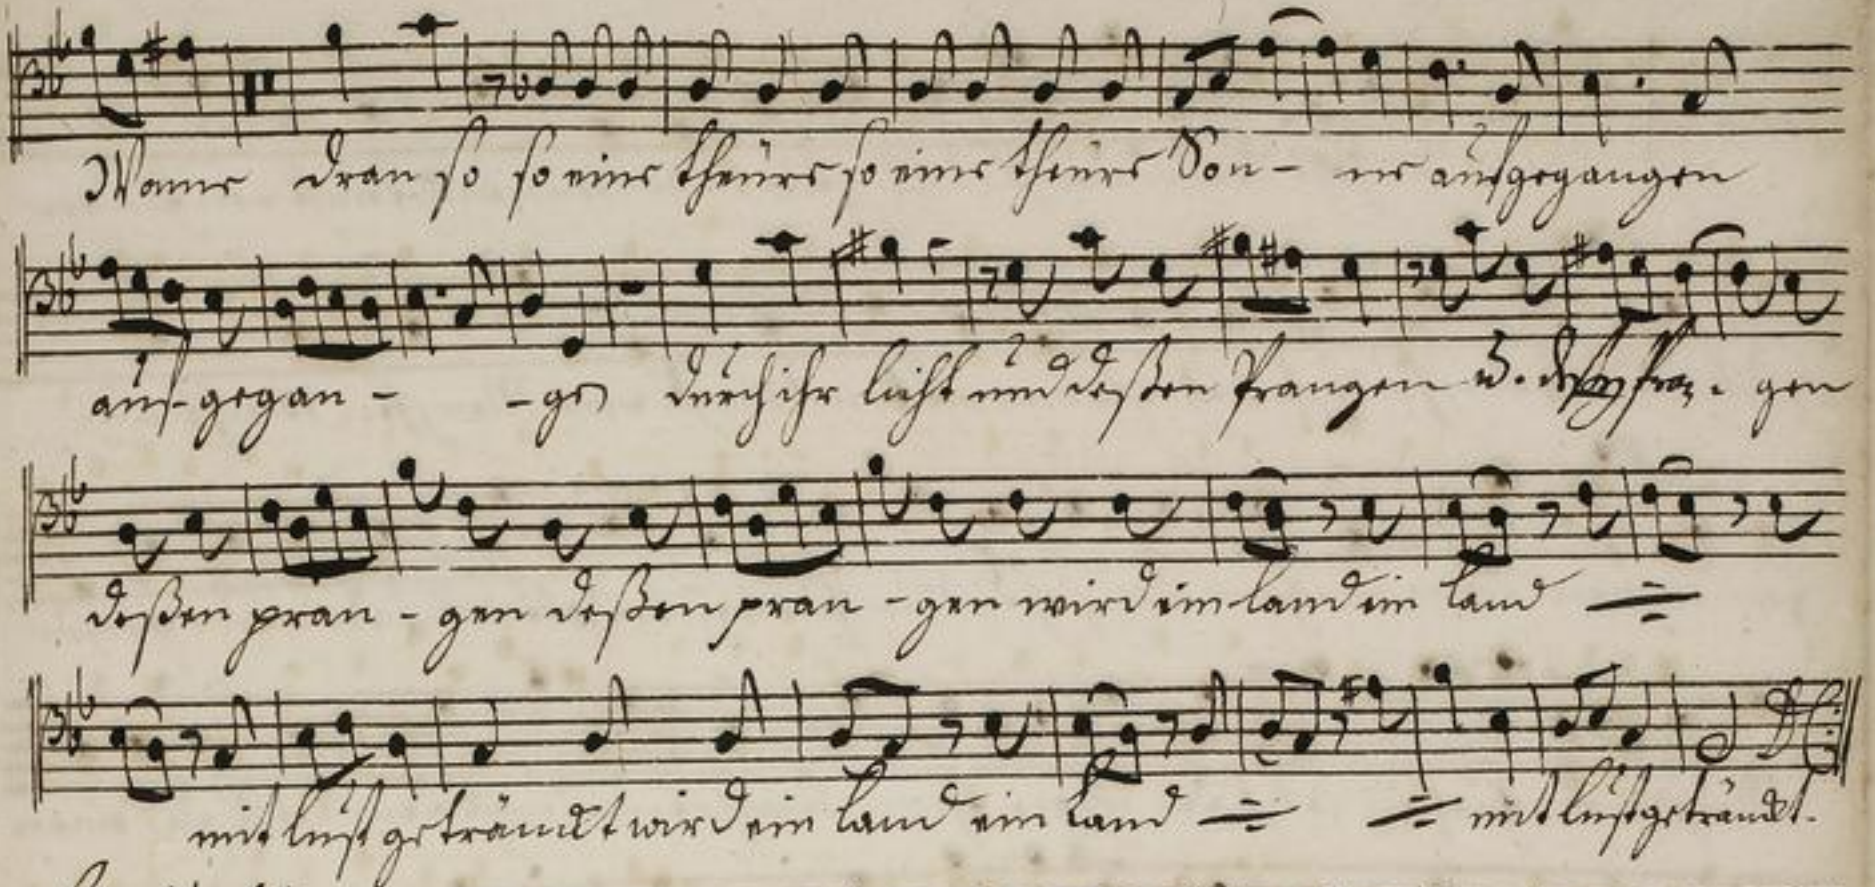 dran so so eine theüre so eine theüre Son - ne aufgegangen
auf-gegan - - gen durch ihr licht und deßen Prangen u. deßen pran - gen
deßen pran - gen deßen pran - gen wird ein land ein land
mit lust getränckt wird ein land ein land mit lust getränckt.